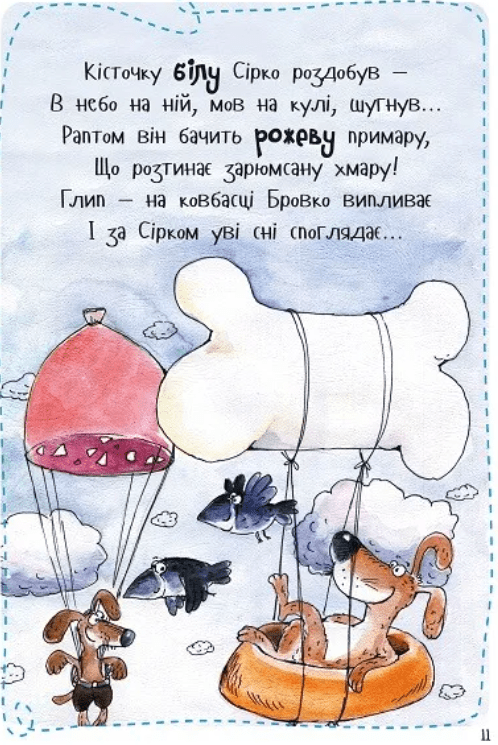 Кісточку білу Сірко роздобув –
В небо на ній, мов на кулі, шугнув...
Раптом він бачить рожеву примару,
Що розтинає зарюмсану хмару!
Глип – на ковбасці Бровко випливає
І за Сірком уві сні споглядає...
11